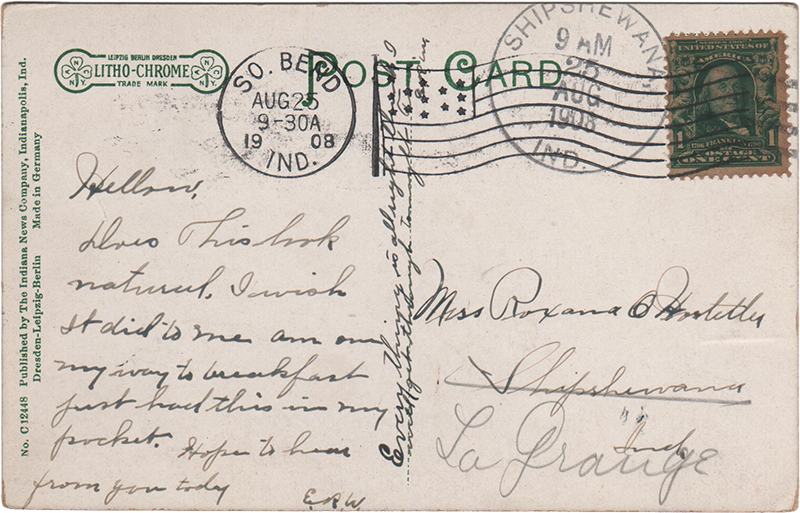 LEIPZIG BERLIN DRESDEN
LITHO-CHROME
TRADE MARK
N N
N.Y.
N N
N.Y.
POST CARD
SO. BEND
AUG 25
9-30A
19 08
IND.
SHIPSHEWANA,
9 AM
25
AUG
1908
IND.
UNITED STATES OF
AMERICA
1 FRANKLIN 1
POSTAGE
ONE CENT
No. C12448 Published by The Indiana News Company, Indianapolis, Ind.
Dresden-Leipzig-Berlin Made in Germany
Hellow,
Does This look
natural, I wish
it did to me am on
my way to breakfast
just had this in my
pocket. Hope to hear
from you today
E.R.W.
Every thing is allright
Miss Roxana C Hostetler
Shipshewana
Ind
La Grange